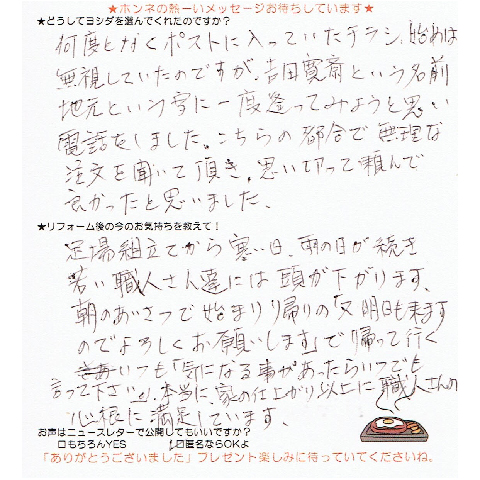 ★ホンネの熱ーいメッセージお待ちしています★
★どうしてヨシダを選んでくれたのですか？
何度となくポストに入っていたチラシ、始めは
無視していたのですが、吉田寛斎という名前
地元という字に一度逢ってみようと思い
電話をしました。こちらの都合で無理な
注文を聞いて頂き、思い切って頼んで
良かったと思いました。
★リフォーム後の今のお気持ちを教えて！
足場組立てから寒い日、朝の日が続き
若い職人さん達には頭が下がります、
朝のあいさつで始まり帰りの「又明日も来ます
のでよろしくお願いします」で帰って行く
いつも「気になる事があったらいつでも
言って下さい」。本当に、家の仕上がり以上に職人さんの
心根に満足しています。
お声はニュースレターで公開してもいいですか？
□もちろんYES　☑匿名ならOKよ
「ありがとうございました」プレゼント楽しみに待っていてくださいね。